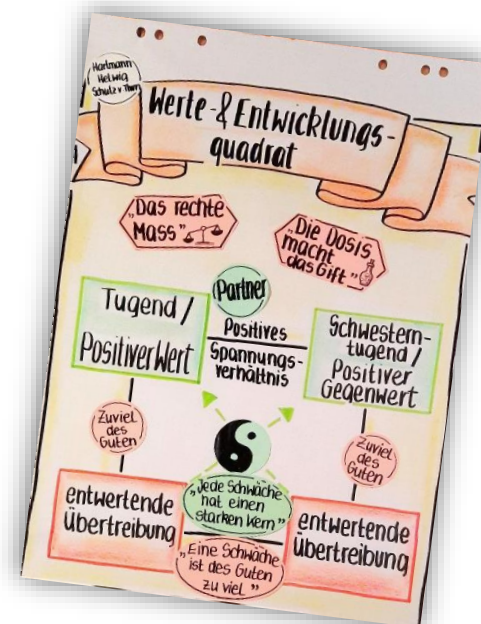 Hartmann
Helwig
Schulz v. Thun
Werte-& Entwicklungs-
quadrat
„Das rechte
Mass"
„Die Dosis
macht
das Gift"
Partner
Tugend /
Positiver Wert
Positives
Spannungs-
verhältnis
Schwestern-
tugend /
Positiver
Gegenwert
Zuviel
des
Guten
Zuviel
des
Guten
entwertende
Übertreibung
„Jede Schwäche
hat einen
starken Kern"
„Eine Schwäche
ist des Guten
zu viel"
entwertende
Übertreibung